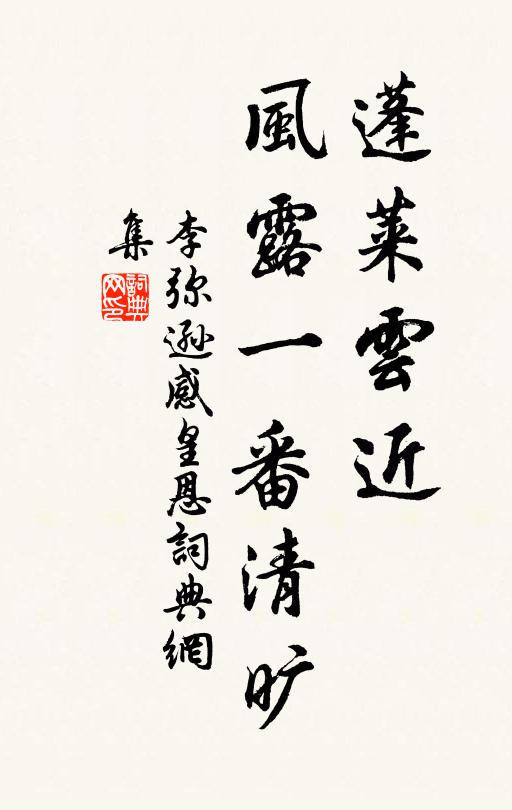 蓬莱雲近
風露一番清旷
李弥遜感皇恩詞典網
集
詞典
网印